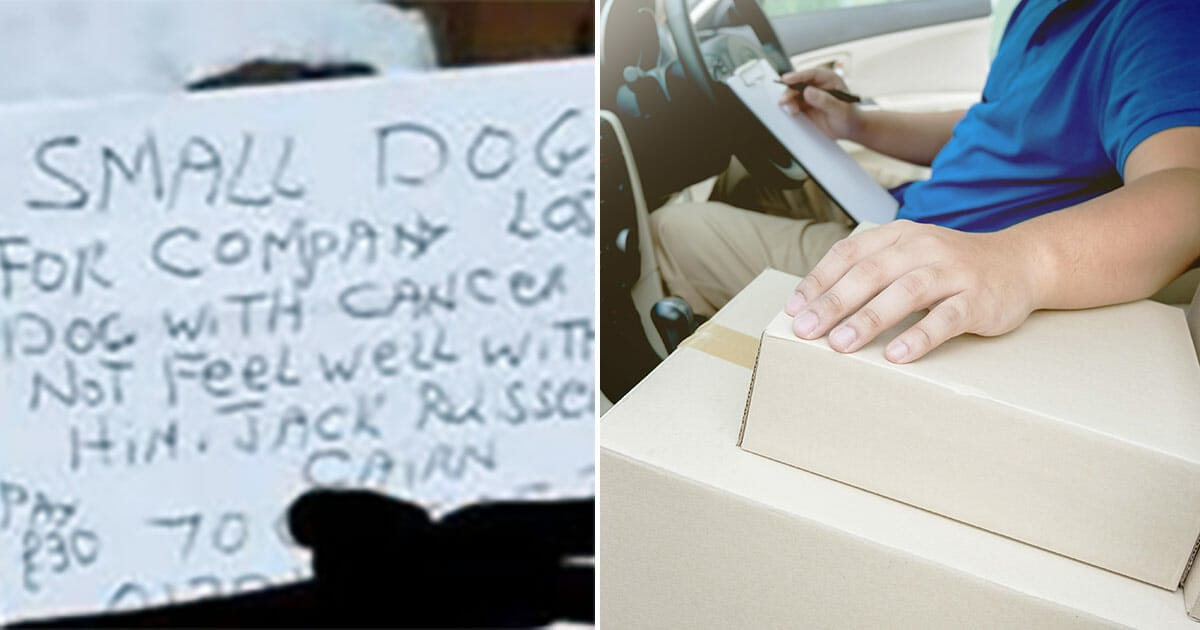 SMALL DOG
FOR COMPANY LOS
DOG WITH CANCER
NOT FEEL WELL WITH
HIM. JACK RUSSE
CAIRN
PAY
£30 70